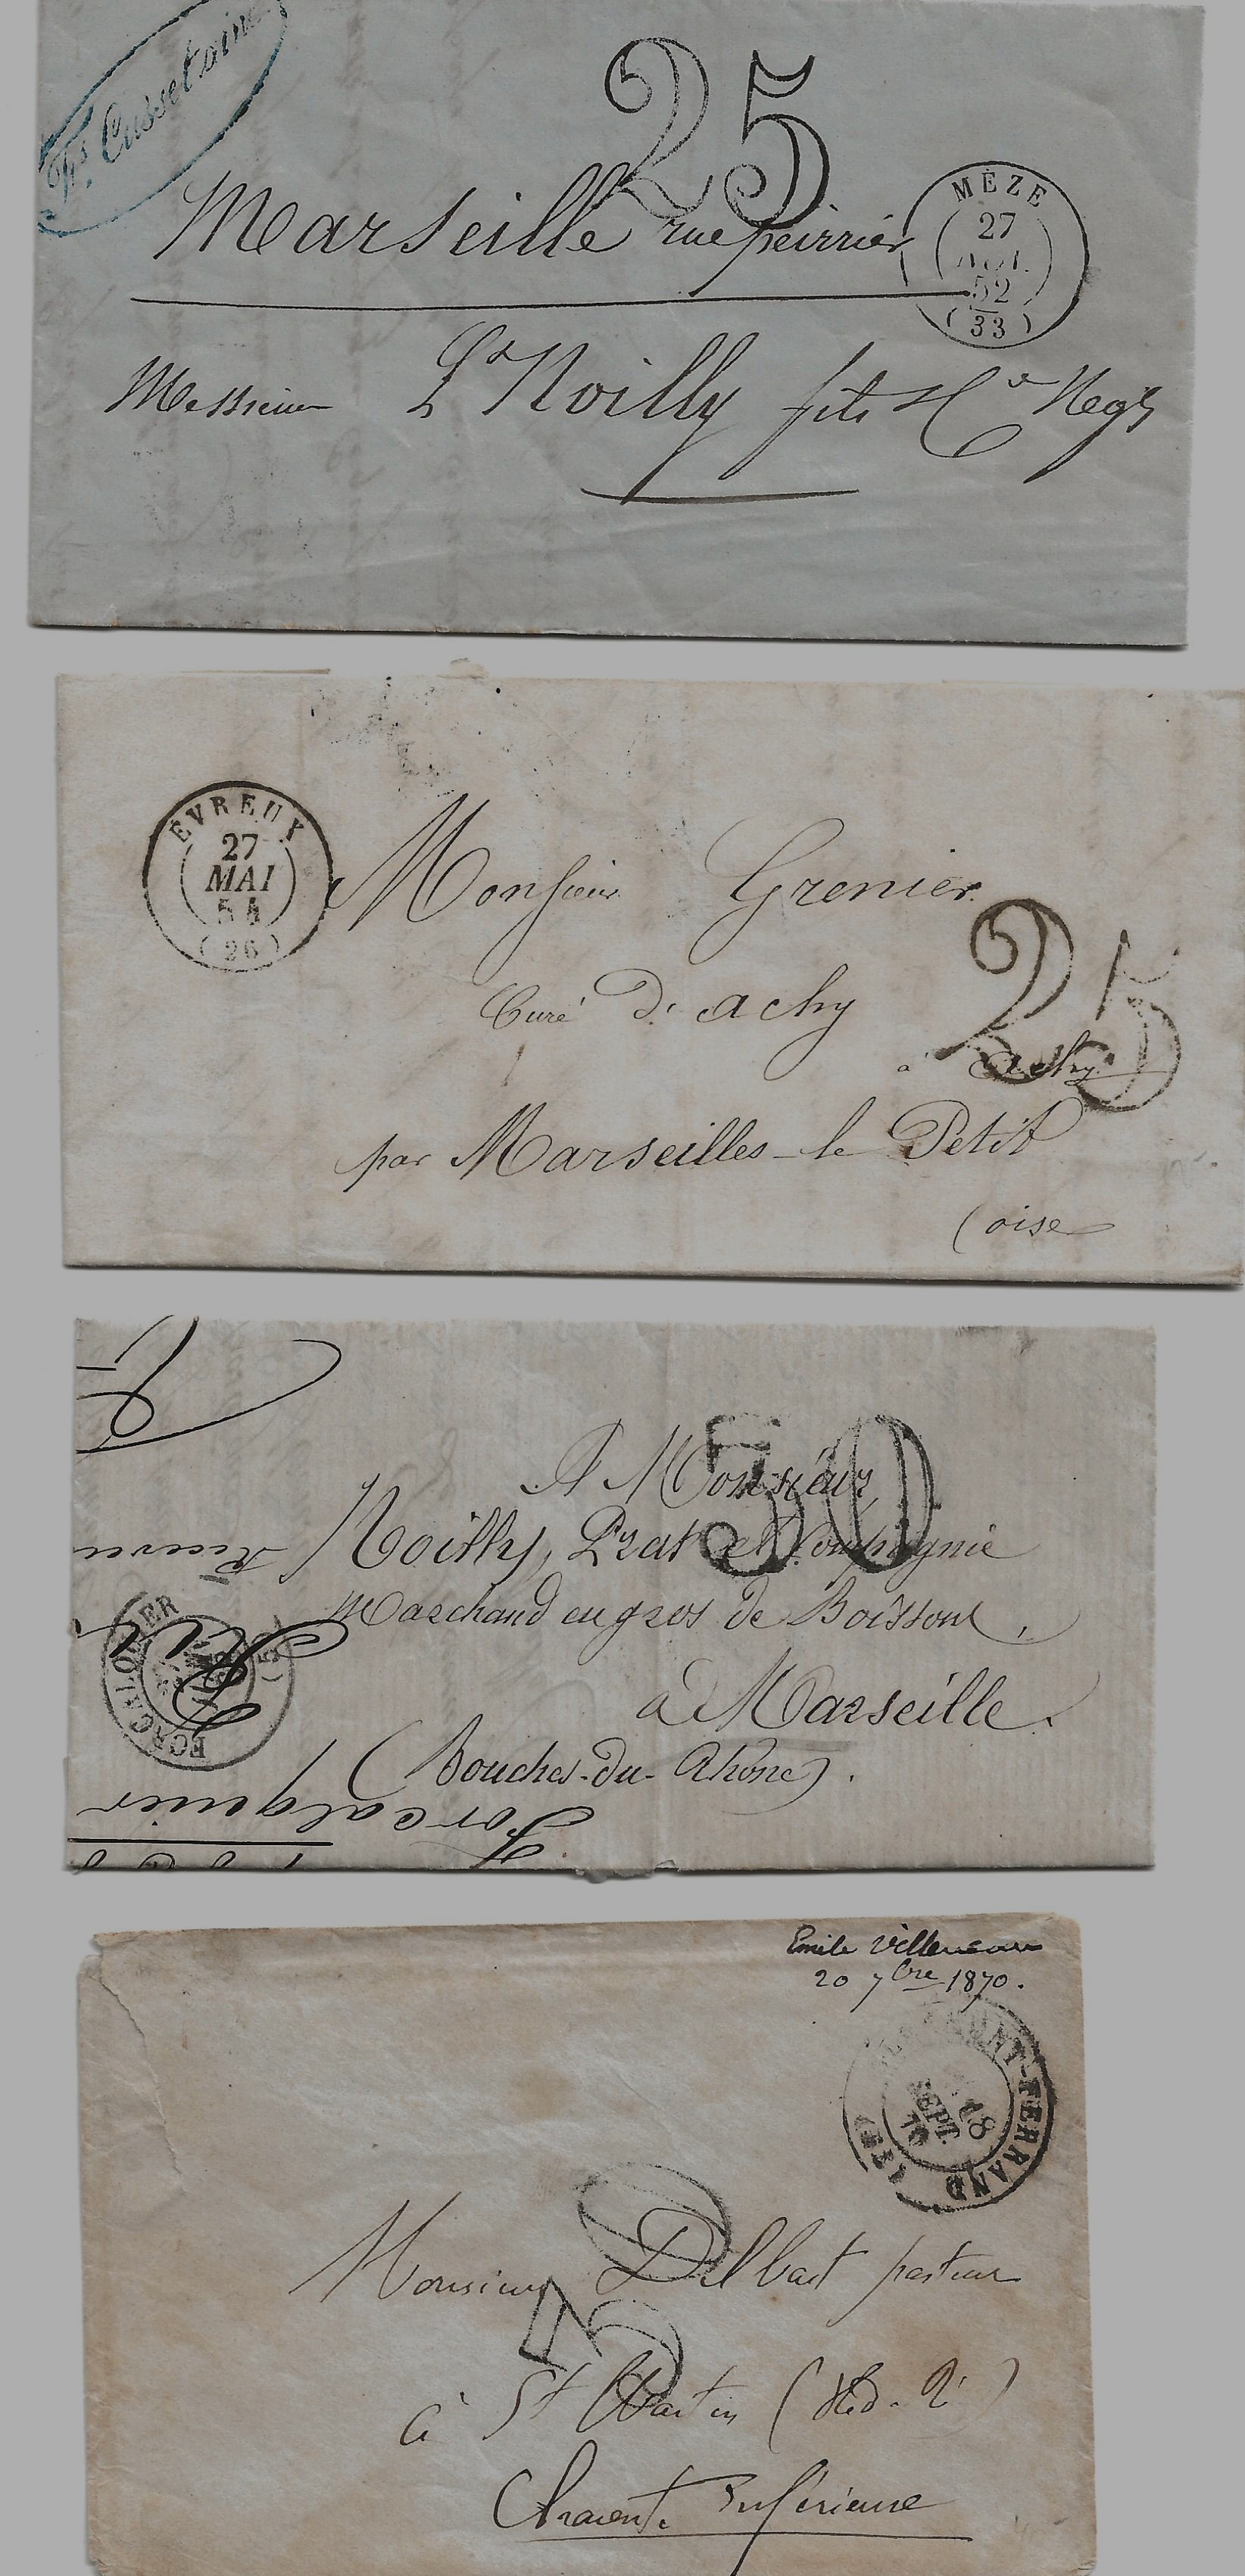 Fs. Cussetaine
25
Marseille rue peirrier
MÈZE
27
52
(33)
Messieurs Ls Noilly fils & Cie Negts
ÉVREUX
27
MAI
54
(26)
Monsieur Grenier
Curé D'achy
25
à achy
par Marseilles-le Petit
(oise
50
A Monsieur,
Noilly, Prat et Compagnie
Marchand en gros de Boissons,
à Marseille.
(Bouches-du-Rhône).
FORCALQUIER
Forcalquier
Emile Villeneau
20 7bre 1870.
CLERMONT-FERRAND
18
SEPT.
70
30
Monsieur Delbart pasteur
à St Martin (Île de Ré)
Charente Inférieure